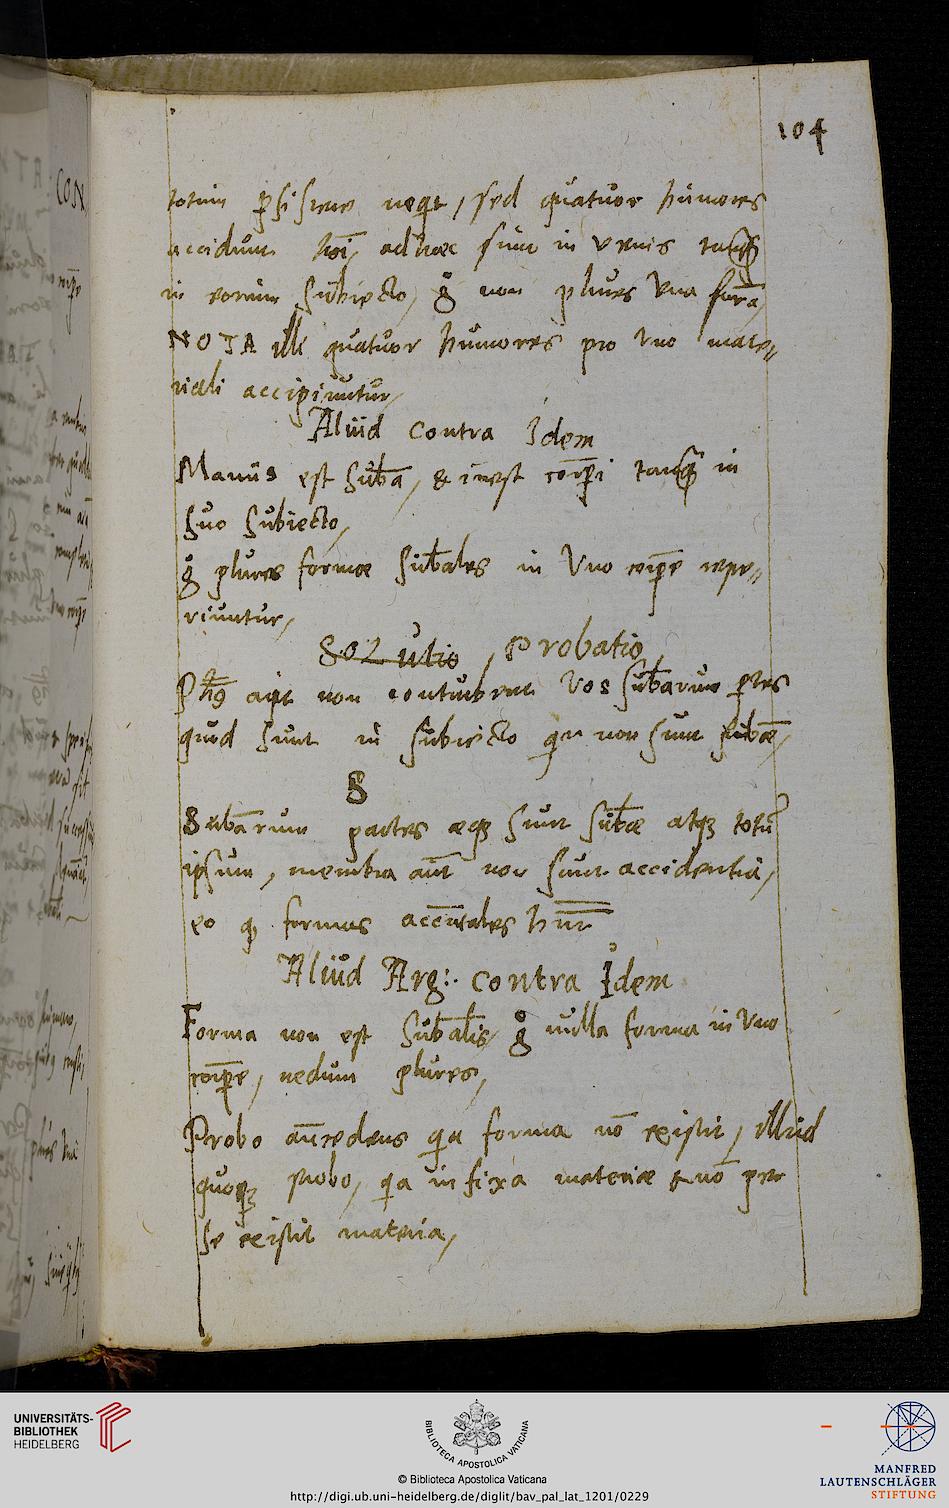 104
totum persistere neqt, sed quatuor humores
accidunt hoi, adhaec sunt in venis tanq̃
in eorum subiecto, g° non plures una forã,
NOTA illi quatuor humores pro uno mate„
riali accipiuntur,
Aliud contra Idem
Manus est subã, & inest corp̃i tanq̃ in
suo subiecto,
g° plures formae subãles in Uno corpẽ repe„
riuntur,
SOLutio, Probatio,
Phũs ait non conturbent vos subãrum ptes
quod sunt in subiecto qa non sunt subae,
S
Subãrum partes aeqz sunt subãe atqz totũ
ipsum, membra aũt non sunt accidentia,
eo q formas accñtales hñt
Aliud Arg: contra Idem
Forma non est Subãlis, g° nulla forma in Uno
corpẽ, nedum plures,
Probo añcedens qa forma nõ existit, illud
quoqz probo, qa infixa materiae & nõ per
se existit materia,
CON
UNIVERSITÄTS-
BIBLIOTHEK
HEIDELBERG
BIBLIOTECA APOSTOLICA VATICANA
© Biblioteca Apostolica Vaticana
http://digi.ub.uni-heidelberg.de/diglit/bav_pal_lat_1201/0229
MANFRED
LAUTENSCHLÄGER
STIFTUNG